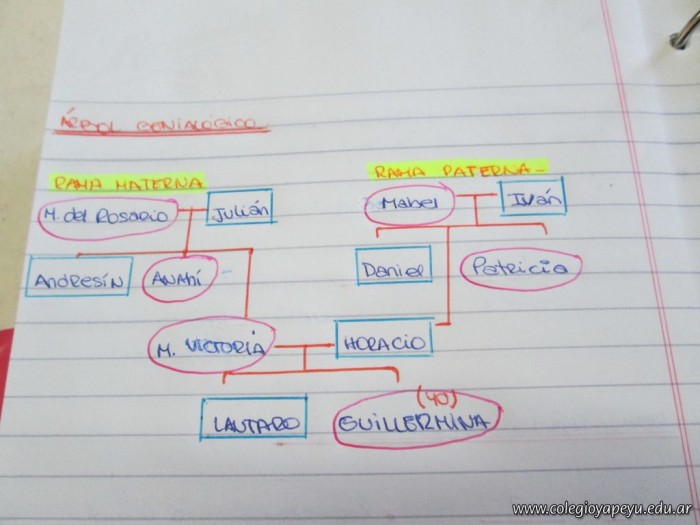 ÁRBOL GENIALÓGICO
RAMA MATERNA
RAMA PATERNA-
M. del Rosario
Julián
Mabel
Iván
Andresín
Anahí
Daniel
Patricia
M. VICTORIA
HORACIO
LAUTARO
(YO)
GUILLERMINA
www.colegioyapeyu.edu.ar